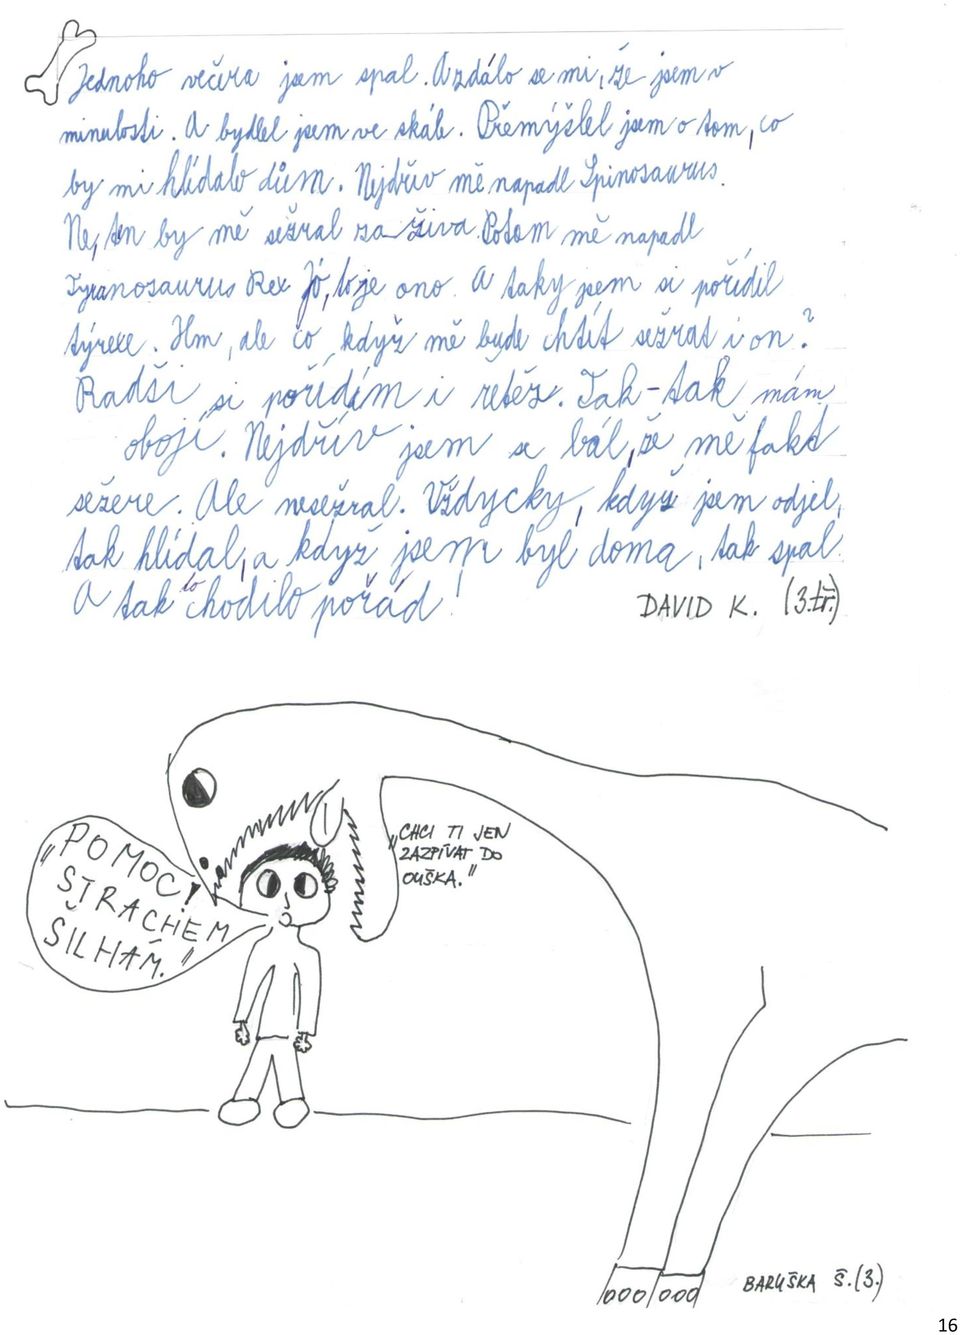 Jednoho večera jsem spal. A zdálo se mi, že jsem v
minulosti. A bydlel jsem ve skále. Přemýšlel jsem o tom, co
by mi hlídalo dům. Nejdřív mě napadl Spinosaurus.
Ne, ten by mě sežral za živa. Potom mě napadl
Tyranosaurus Rex. Jó, to je ono. A taky jsem si pořídil
týrexe. Hm, ale co, když mě bude chtít sežrat i on?
Radši si pořídím i retěz. Tak-tak mám
obojí. Nejdřív jsem se bál, že mě fakt
sežere. Ale nesežral. Vždycky, když jsem odjel,
tak hlídal, a když jsem byl doma, tak spal.
A tak to chodilo pořád!
DAVID K. (3.tř.)
„POMOC!
STRACHEM
ŠILHÁM.“
„CHCI TI JEN
ZAZPÍVAT DO
OUŠKA.“
BARUŠKA Š.(3.)
16